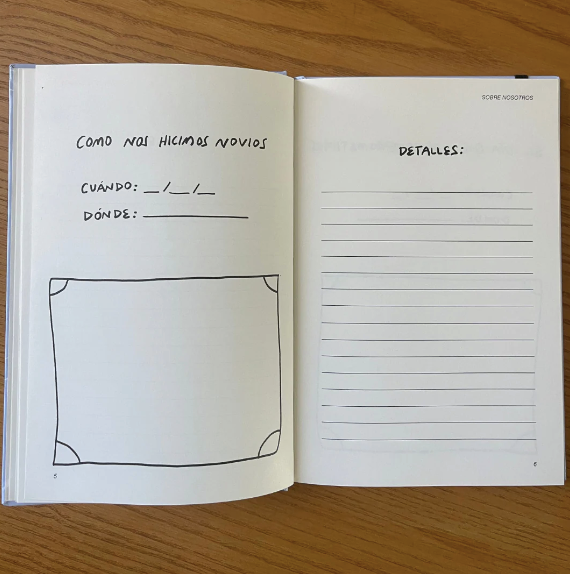 COMO NOS HICIMOS NOVIOS
CUÁNDO: __/__/__
DÓNDE: ____________
5
SOBRE NOSOTROS
DETALLES:
6